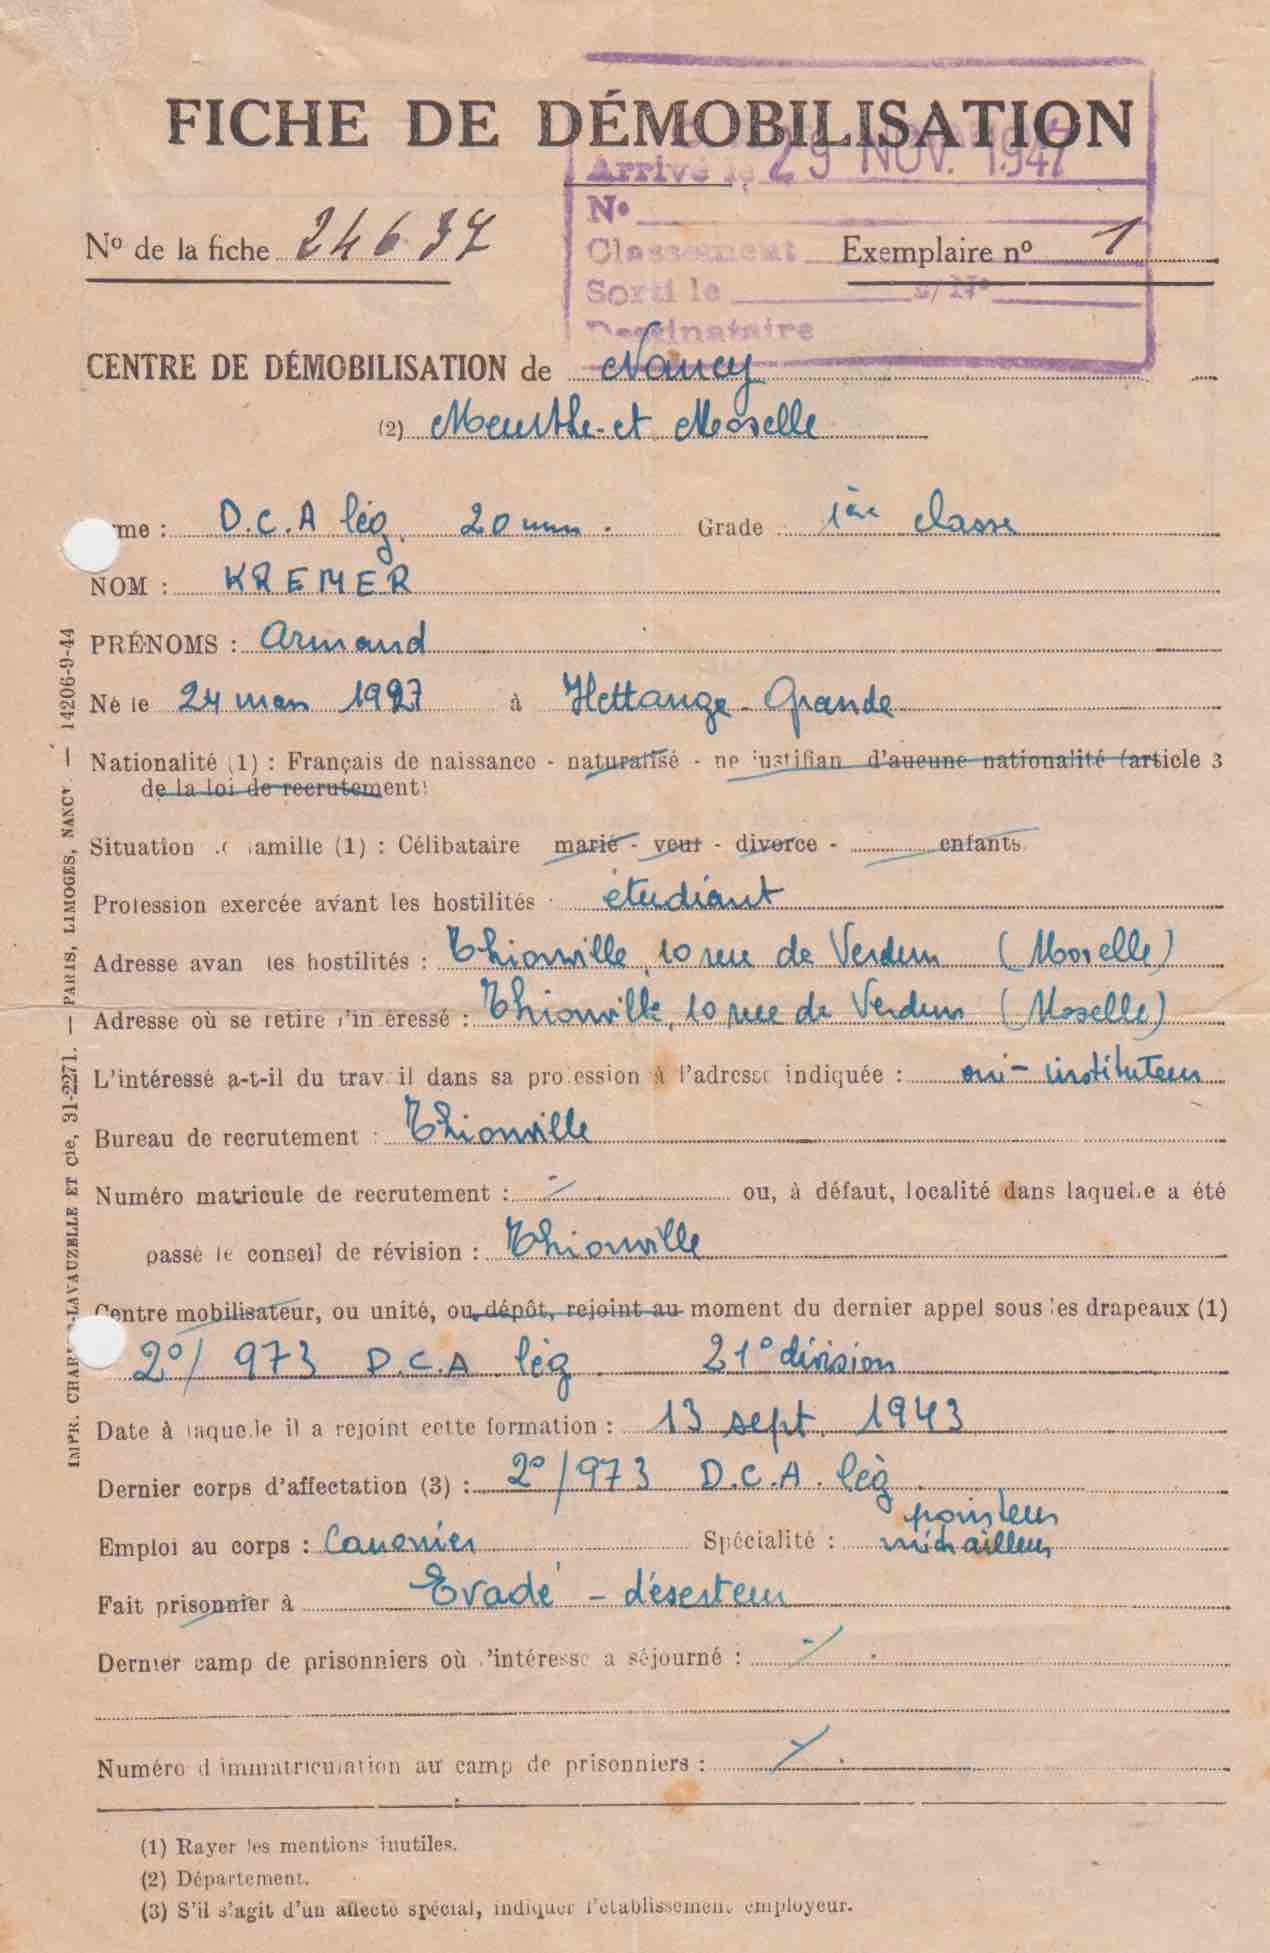 FICHE DE DÉMOBILISATION
Arrivé le 29 NOV. 1947
N°
Classement
Sorti le s/ N°
Destinataire
N° de la fiche 24637
Exemplaire n° 1
CENTRE DE DÉMOBILISATION de Nancy
(2) Meurthe-et Moselle
me : D.C.A lég. 20 mm. Grade : 1ère classe
NOM : KREMER
PRÉNOMS : Armand
Né le 24 mars 1927 à Hettange-Grande
Nationalité (1) : Français de naissance - naturalisé - ne justifian d'aucune nationalité (article 3
de la loi de recrutement)
Situation de famille (1) : Célibataire marié - veuf - divorcé - enfants
Profession exercée avant les hostilités : étudiant
Adresse avan les hostilités : Thionville, 10 rue de Verdun (Moselle)
Adresse où se retire l'intéressé : Thionville, 10 rue de Verdun (Moselle)
L'intéressé a-t-il du travail dans sa profession à l'adresse indiquée : oui - instituteur
Bureau de recrutement : Thionville
Numéro matricule de recrutement : ou, à défaut, localité dans laquelle a été
passé le conseil de révision : Thionville
Centre mobilisateur, ou unité, ou dépôt, rejoint au moment du dernier appel sous les drapeaux (1)
2°/ 973 D.C.A lég 21° division
Date à laquelle il a rejoint cette formation : 13 sept. 1943
Dernier corps d'affectation (3) : 2°/973 D.C.A. lég
pointeur
Emploi au corps : Canonier Spécialité : mitrailleur
Fait prisonnier à Evadé - déserteur
Dernier camp de prisonniers où l'intéressé a séjourné :
Numéro d'immatriculation au camp de prisonniers :
(1) Rayer les mentions inutiles.
(2) Département.
(3) S'il s'agit d'un affecté spécial, indiquer l'établissement employeur.
IMPR. CHARLES-LAVAUZELLE ET Cie, 31-2271. — PARIS, LIMOGES, NANCY. — 14206-9-44